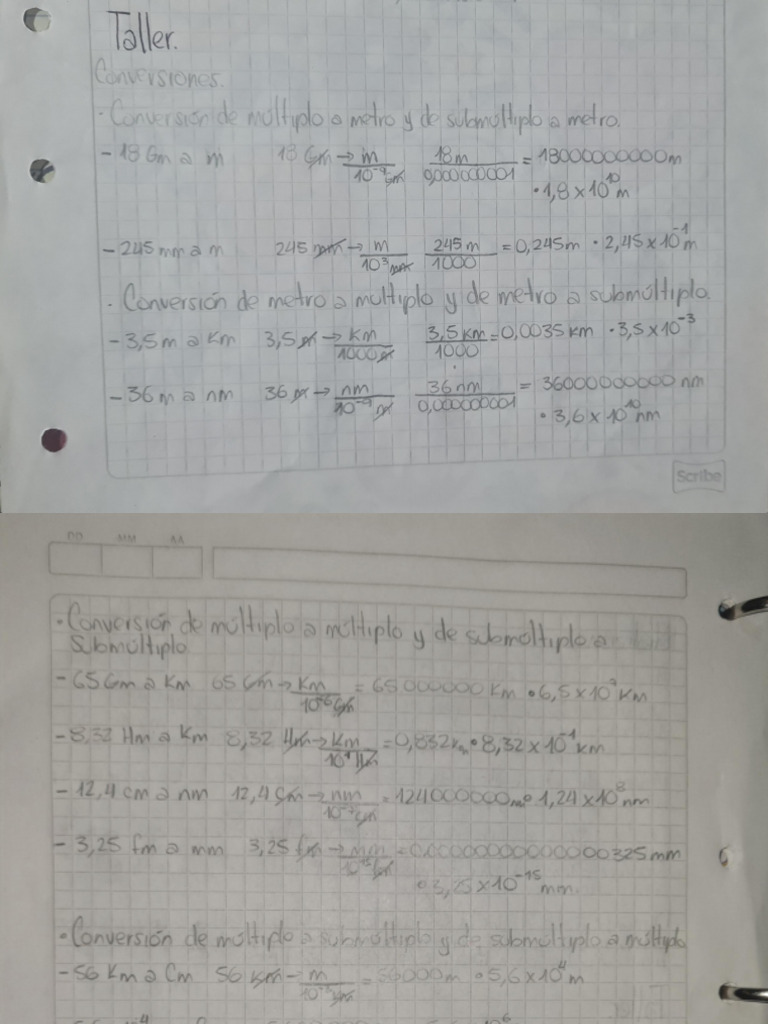 Taller.
Conversiones.
· Conversión de múltiplo a metro y de submúltiplo a metro.
- 18 Gm a m 18 Gm → m/10⁻⁹Gm 18m/0,000000001 = 18000000000m
· 1,8 x 10¹⁰ m
- 245 mm a m 245 mm → m/10³mm 245 m/1000 = 0,245m · 2,45 x 10⁻¹ m
· Conversión de metro a multiplo y de metro a submúltiplo.
- 3,5m a Km 3,5 m → Km/1000m 3,5 Km/1000 = 0,0035 Km · 3,5 x 10⁻³
- 36 m a nm 36 m → nm/10⁻⁹m 36 nm/0,000000001 = 36000000000 nm
· 3,6 x 10¹⁰ nm
Scribe
DD MM AA
· Conversión de múltiplo a múltiplo y de submúltiplo a
Submúltiplo
- 65 Gm a Km 65 Gm → Km/Gm = 65000000 Km · 6,5 x 10 Km
- 8,32 Hm a Km 8,32 Hm → Km/10¹Hm = 0,832 · 8,32 x 10⁻¹ Km
- 12,4 cm a nm 12,4 cm → nm/10⁻⁷cm = 124000000 · 1,24 x 10⁸ nm
- 3,25 fm a mm 3,25 fm → mm/fm = mm
· 3,25 x 10⁻¹⁵ mm
· Conversión de múltiplo a submúltiplo y de submúltiplo a múltiplo
- 56 Km a Cm 56 Km → m/10⁻³Km = 56000m · 5,6 x 10⁴ m